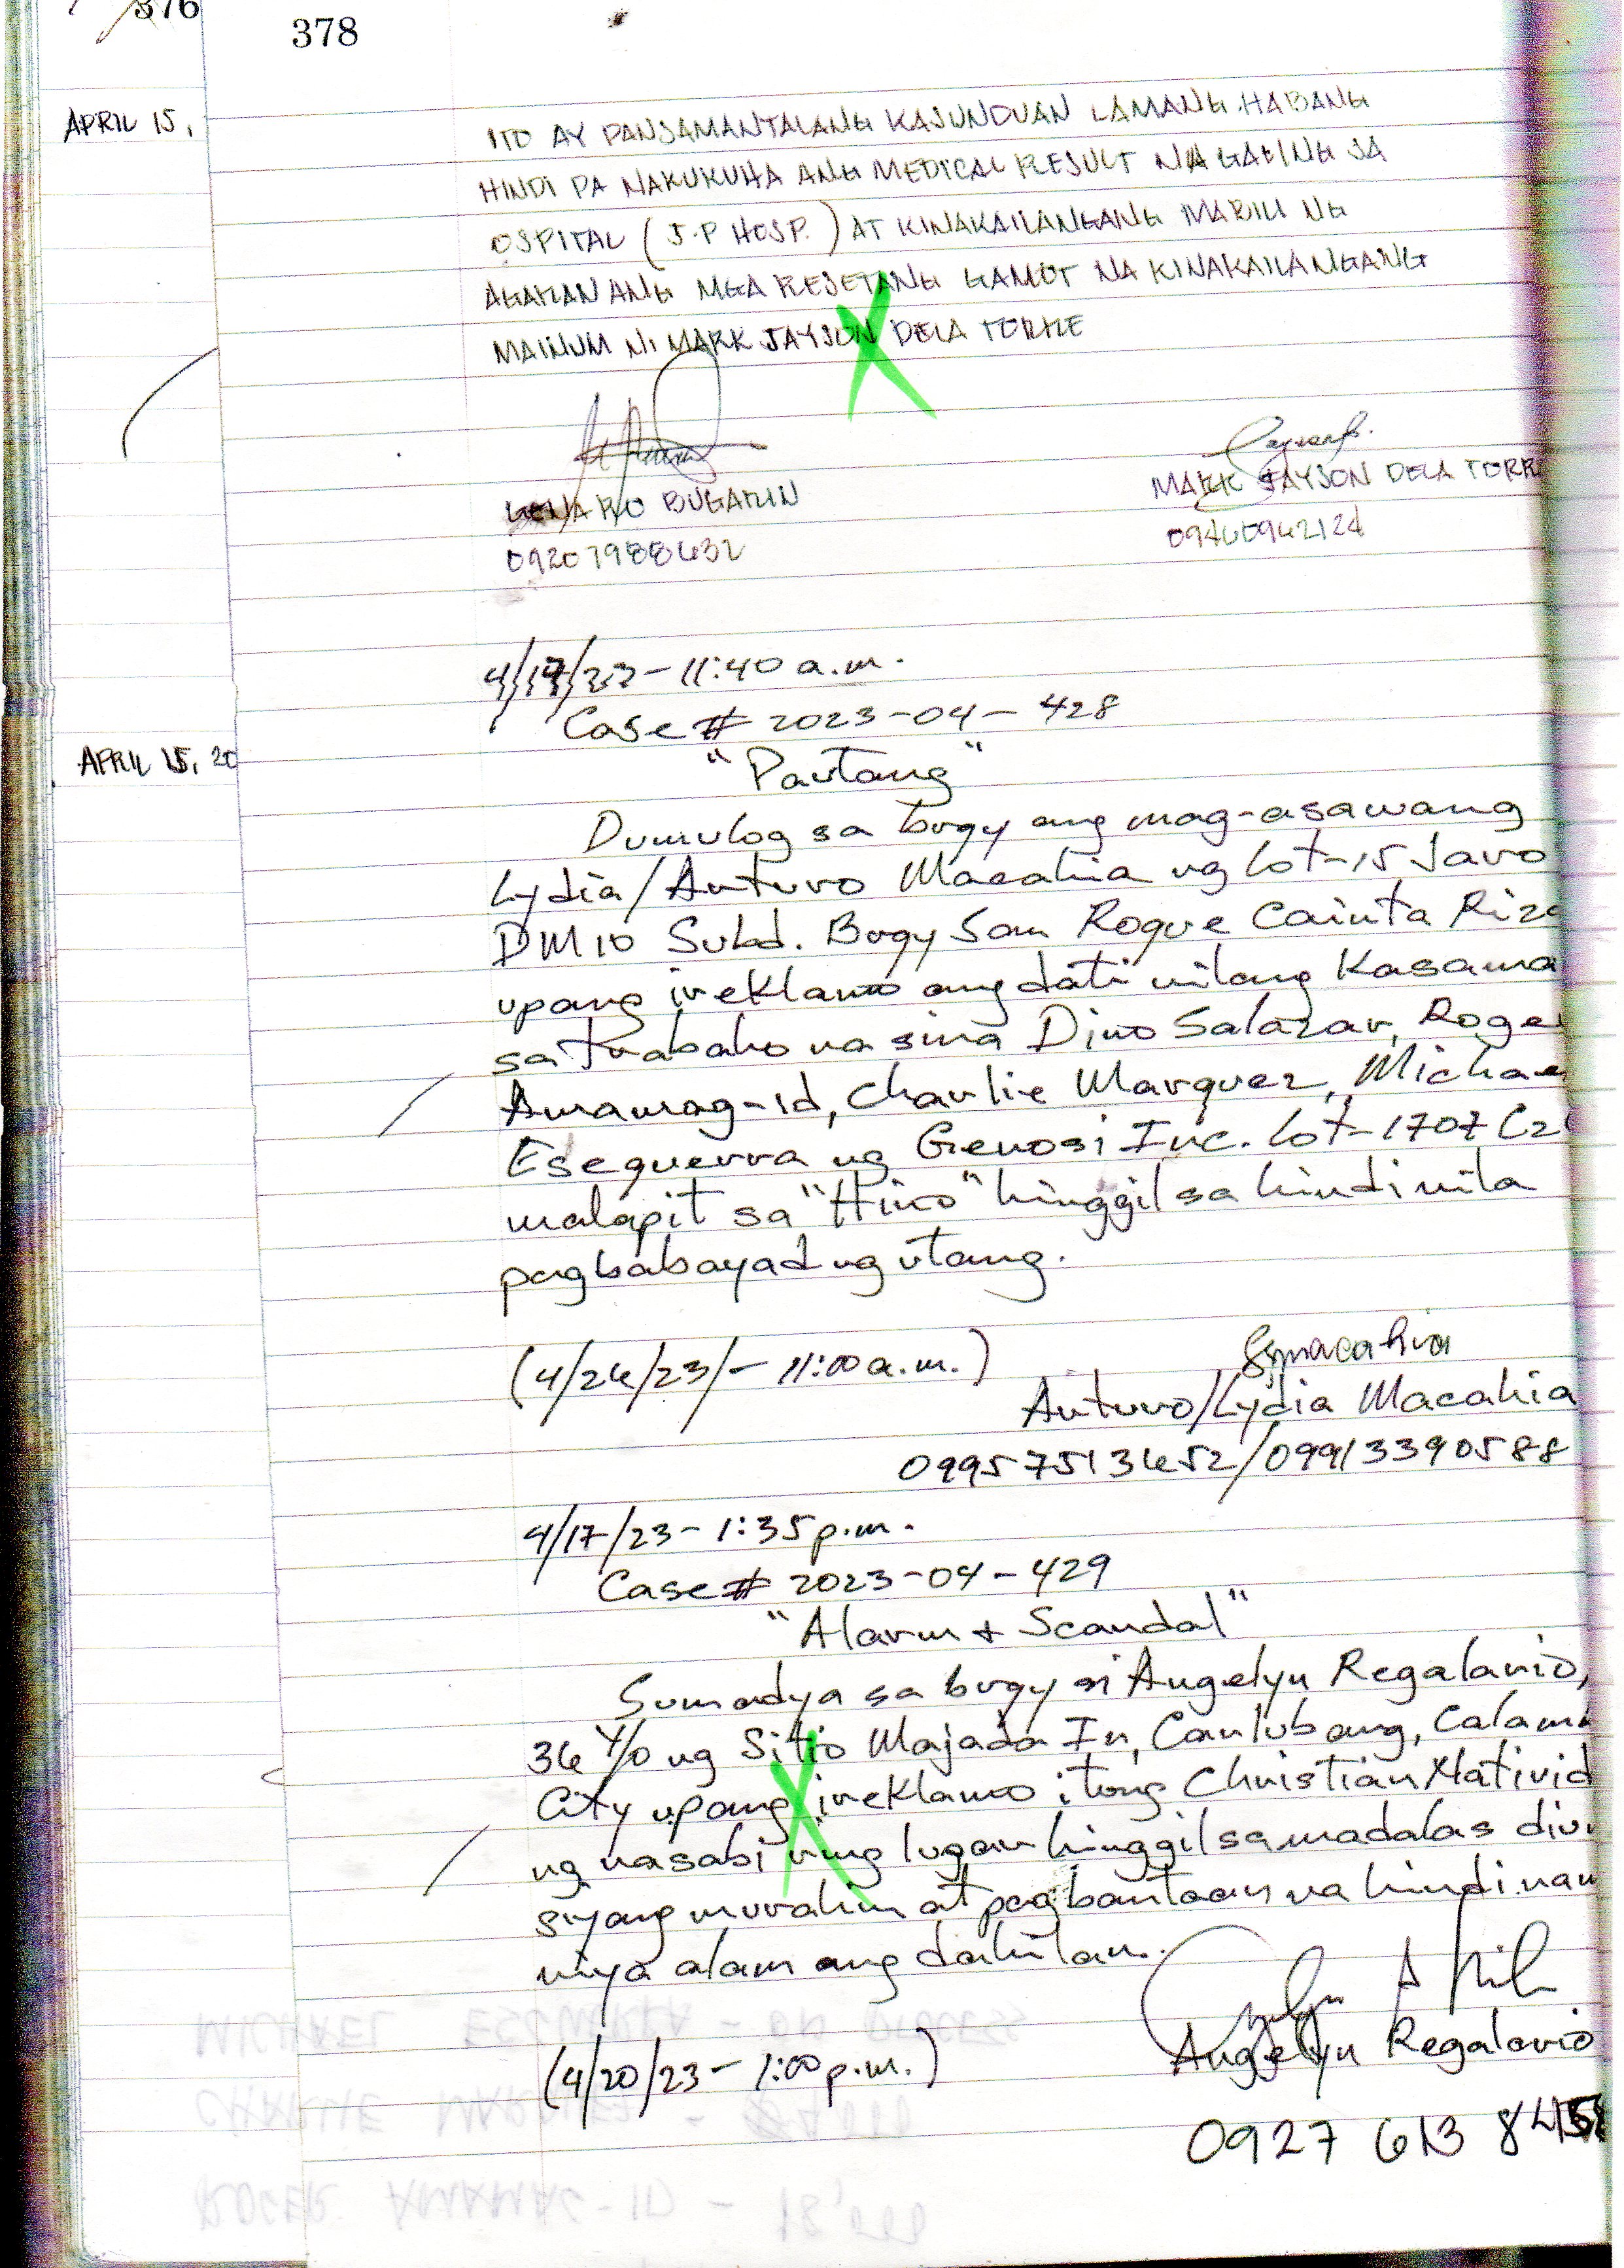 376
378
APRIL 15,
ITO AY PANSAMANTALANG KASUNDUAN LAMANG HABANG
HINDI PA NAKUKUHA ANG MEDICAL RESULT NA GALING SA
OSPITAL (J.P HOSP.) AT KINAKAILANGANG MABILI NG
AGARAN ANG MGA RESETANG GAMOT NA KINAKAILANGANG
MAINUM NI MARK JAYSON DELA TORRE
GENARO BUGARIN
MARK JAYSON DELA TORR
09207988632
09460962124
4/17/23 - 11:40 a.m.
Case # 2023-04-428
APRIL 15, 20
"Pautang"
Dumulog sa brgy ang mag-asawang
Lydia/Arturo Macahia ng Lot-15 Javo
DM10 Subd. Brgy San Roque Cainta Riza
upang ireklamo ang dati nilang Kasama
sa trabaho na sina Dino Salazar, Roge
Amamag-id, Charlie Marquez, Michae
Eseguerra ng Genosi Inc. Lot-1707
malapit sa "Hino" hinggil sa hindi nila
pagbabayad ng utang.
(4/26/23/- 11:00 a.m.)
Arturo/Lydia Macahia
09957513652/09913390588
4/17/23 - 1:35 p.m.
Case # 2023-04-429
"Alarm & Scandal"
Sumadya sa brgy si Angelyn Regalario,
36 y/o ng Sitio Majada In, Canlubang, Calam
City upang ireklamo itong Christian Nativid
ng nasabi ring lugar hinggil sa madalas
siyang murahin at pagbantaan na hindi nam
niya alam ang dahilan.
(4/20/23 - 1:00 p.m.)
Angelyn Regalario
0927 613 845